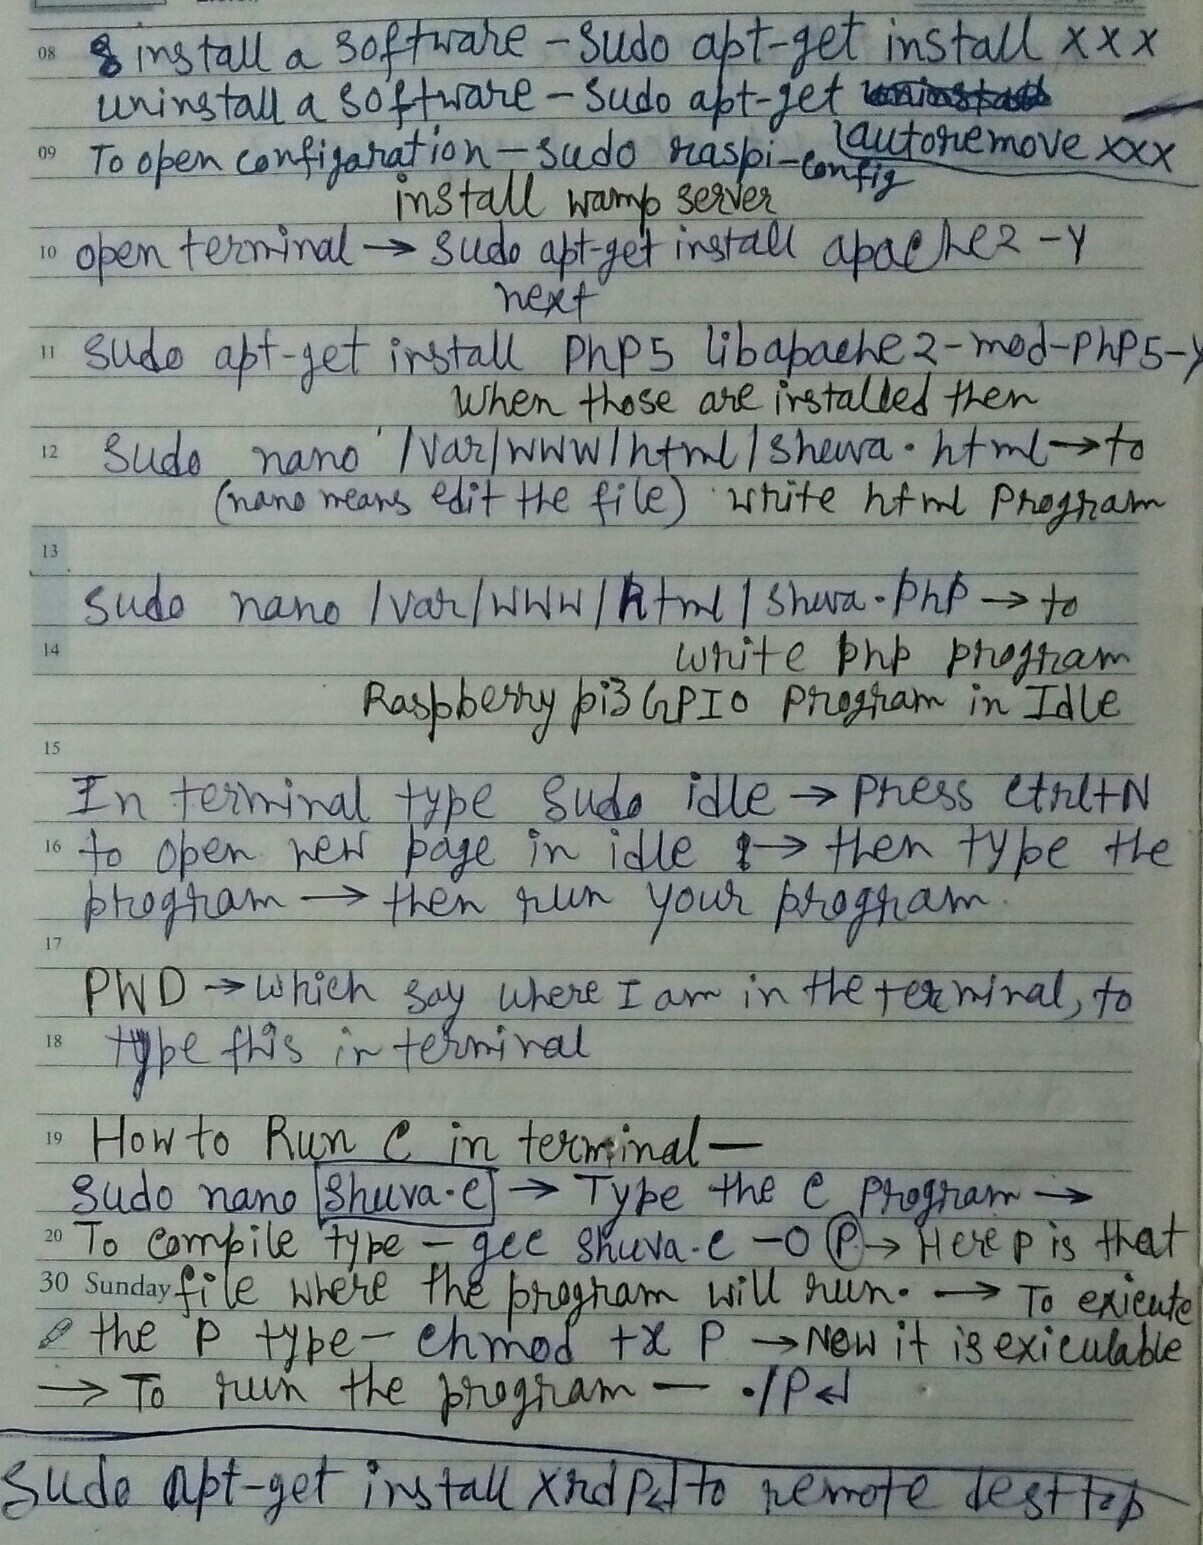 08 install a software - sudo apt-get install xxx
uninstall a software - sudo apt-get
autoremove xxx
09 To open configaration - sudo raspi-config
install wamp server
10 open terminal → sudo apt-get install apache2 -y
next
11 sudo apt-get install php5 libapache2-mod-php5-y
When those are installed then
12 sudo nano /var/www/html/shuva.html → to
(nano means edit the file) write html program
13
sudo nano /var/www/html/shuva.php → to
14 write php program
Raspberry pi3 GPIO program in Idle
15
In terminal type sudo idle → press ctrl+N
16 to open new page in idle → then type the
program → then run your program.
17
PWD → which say where I am in the terminal, to
18 type this in terminal
19 How to Run C in terminal —
sudo nano shuva.c → Type the C program →
20 To compile type - gcc shuva.c -o P → Here p is that
30 Sunday file where the program will run. → To exicute
the P type - chmod +x P → Now it is exiculable
→ To run the program — ./P↲
sudo apt-get install xrdp↲ to remote desttop